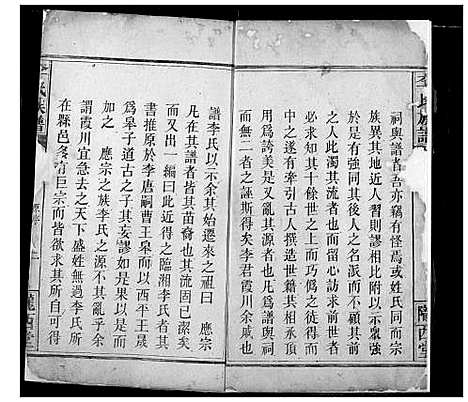 李氏族譜
隴西堂
祠與譜者吾亦竊有怪焉或姓同而宗
族異其地近人習則謬相比附以示衆強
於是有強同其後人之名派而不顧
留而樂於訪求者見夫今之顯於時者
之人此濁其流者也而凡作譜者又
必求知其十餘世之上而巧僞之徒得而
中之遂有牽引古人撰造世籍其相承頂
用爲誇美是又亂其源者也凡祠譜
而無二者之誣斯得矣李君霞川余戚也
譜李氏以示余其始遷來之祖曰應宗
譜者皆其苗裔也其流固已潔矣
而又出一編曰此近得之臨湘李氏者其
書推原於李唐嗣曹王皋而以西平王晟
爲皋子道古之子其妄謬如是果以是而
加之應宗之族李氏之源不其亂乎余
謂霞川宜急去之天下盛姓無過李氏所
在縣邑多有巨宗而皆欲求其所自可得
李氏族譜
隴西堂